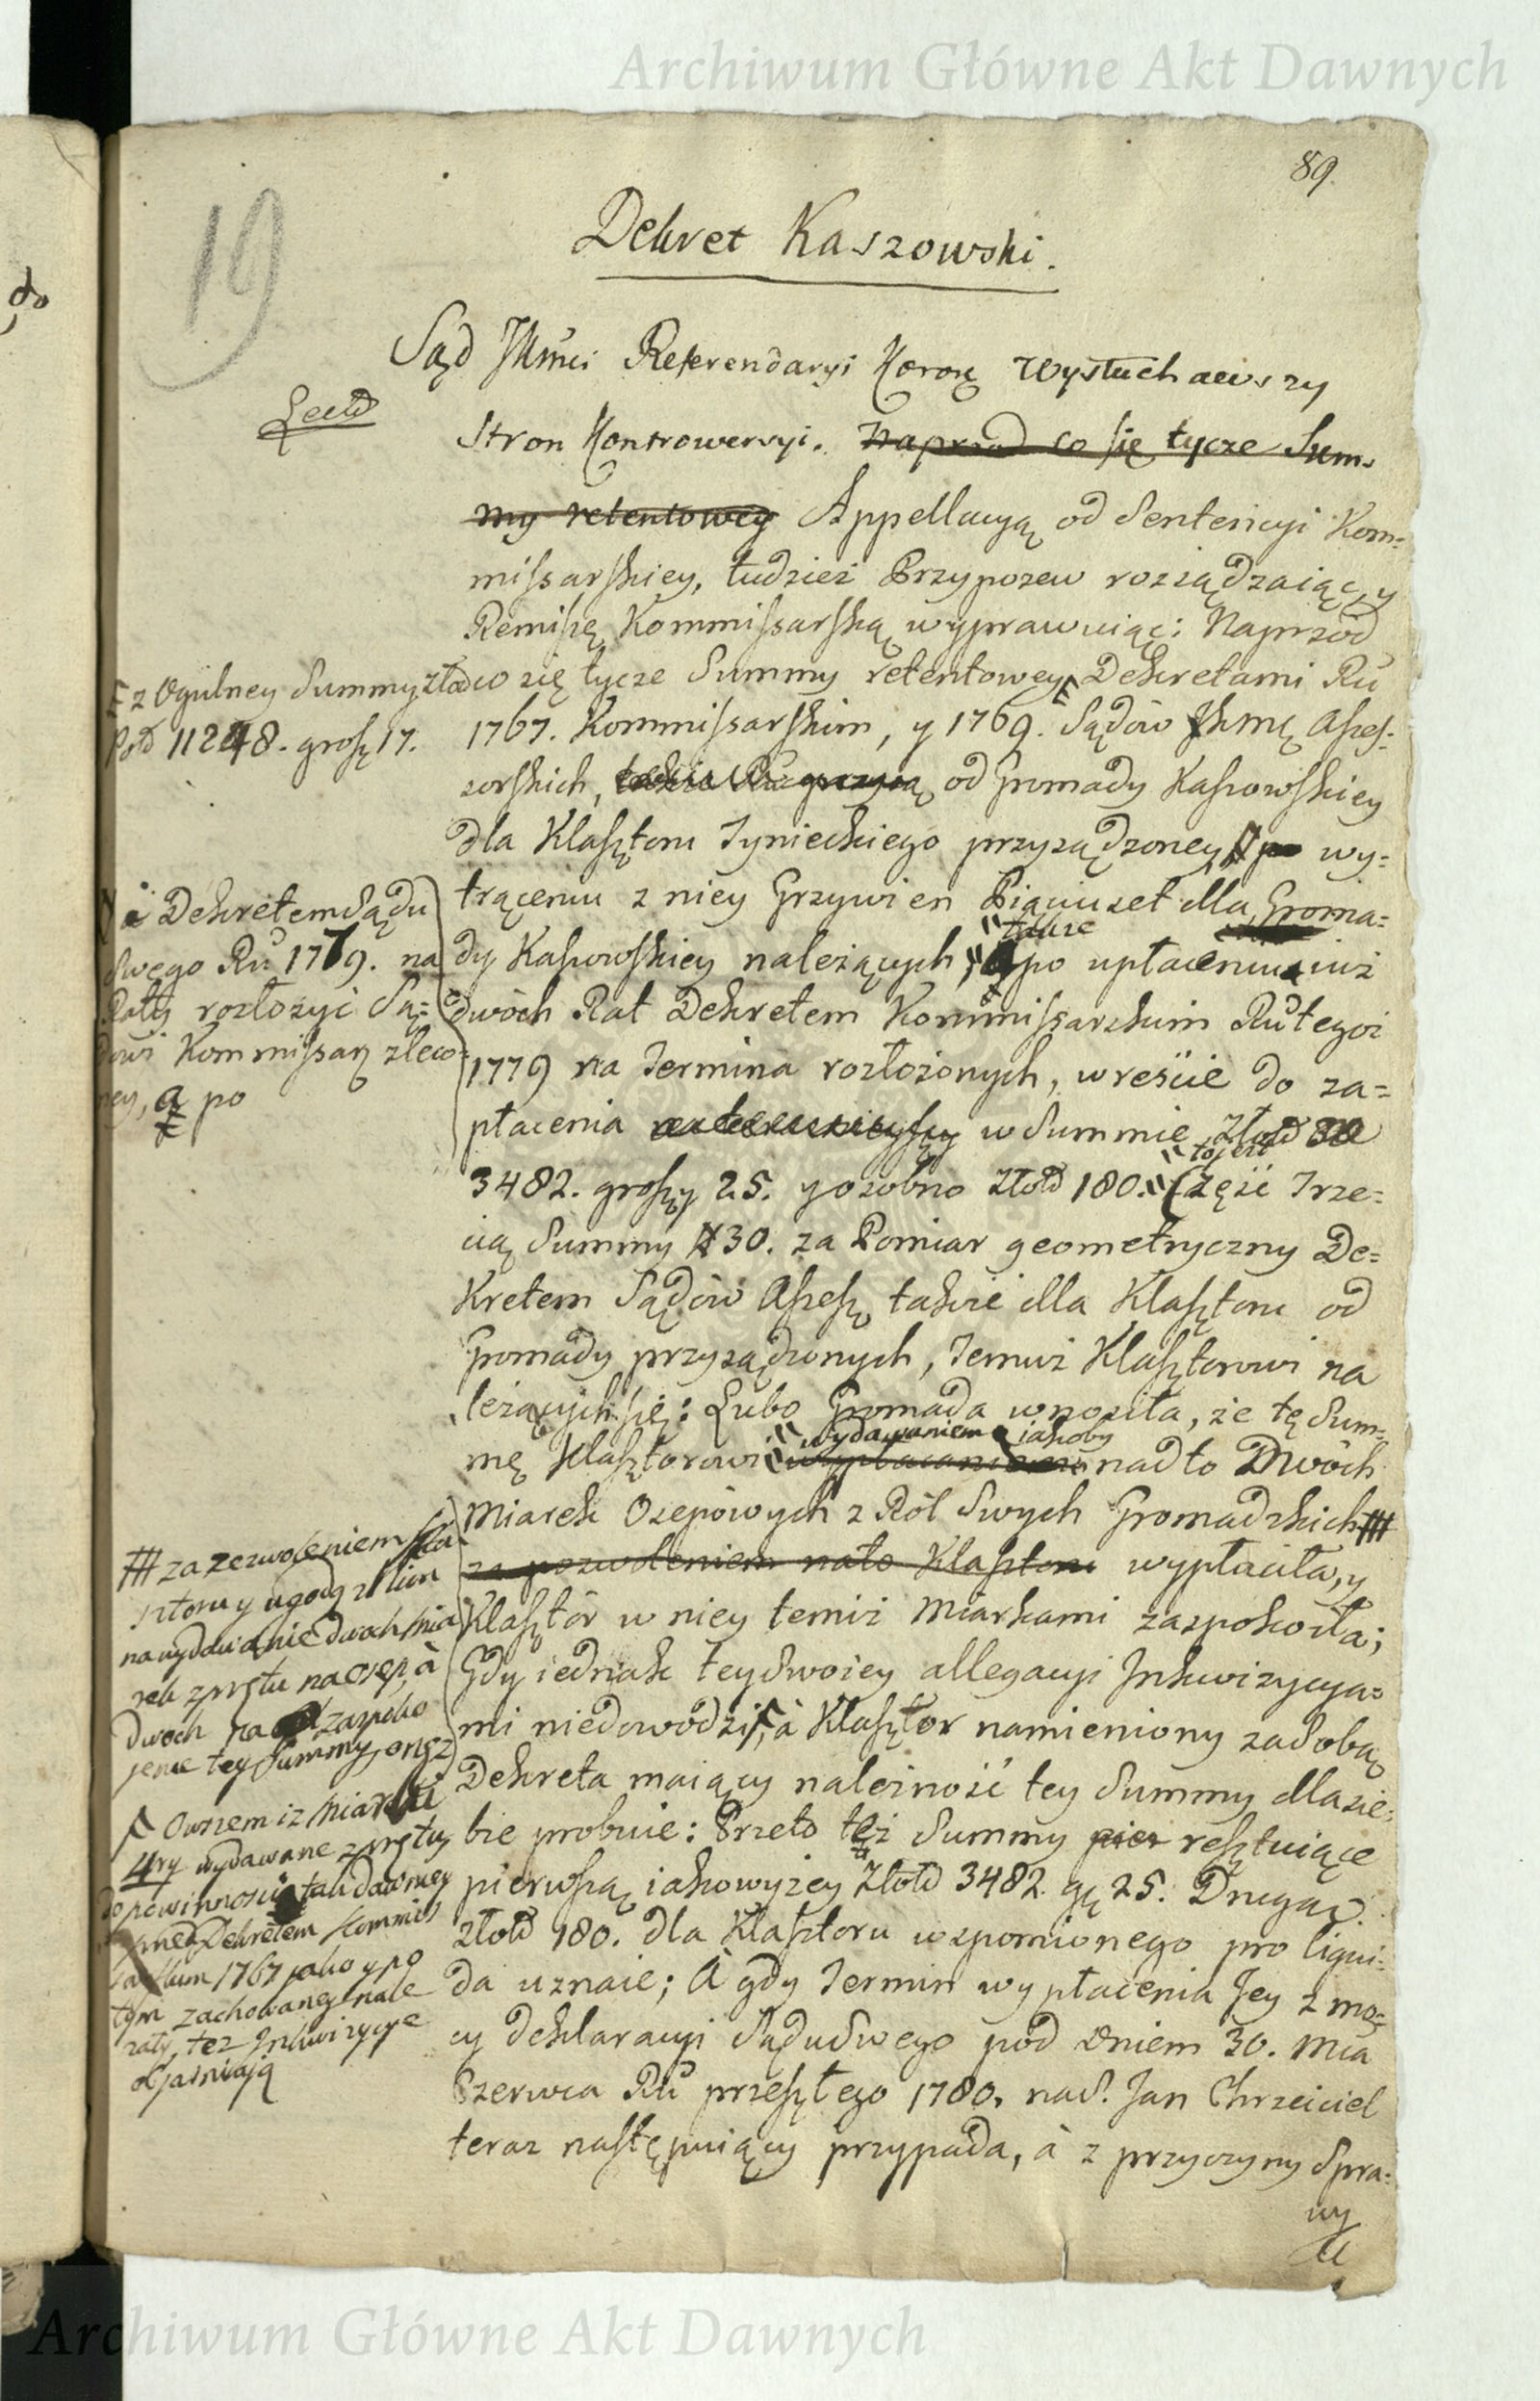 Archiwum Główne Akt Dawnych
89.
19
do
Dekret Kaszowski.
Sąd JKMci Referendaryi Koroñ wysłuchawszy
Lectũ
Stron Kontrowersyi. Naprzod co się tycze Sum-
my retentowey Appellacyą od Sentencyi Kom=
missarskiey, tudzież Przypozew rozsądzaiąc, y
Remissę Kommissarską wyprawuiąc: Naprzód
co się tycze Summy retentowey Dekretami Ru
1767. Kommissarskim, y 1769. Sądów JKMę Asses=
sorskich, od Gromady Kaszowskiey
dla Klasztoru Tynieckiego przysądzoney, po wy=
trąceniu z niey Grzywien Pięciuset dla Groma=
dy Kaszowskiey należących, także po upłaceniu iuż
dwóch Rat Dekretem Kommissarskim Ru tegoż
1779 na Termina rozłożonych, wreście do za=
płacenia w Summie Złotð
3482. groszy 25. y osobno Złotð 180. to iest Część Trze=
cią Summy 30. za Pomiar geometryczny De=
kretem Sądów Assess, także dla Klasztoru od
Gromady przysądzonych, Temuż Klasztorowi na
leżących się: Lubo Gromada wnosiła, że tę Sum=
mę Klasztorowi wydawaniem iakoby nadto Dwóch
Miarek Osepówych z Ról Swych Gromadzkich ###
za pozwoleniem nato Klasztoru wypłaciła, y
Klasztór w niey temiż Miarkami zaspokoiła;
Gdy iednak tey Swoiey allegacyi Inkwizycya=
mi niedowodzi, à Klasztor namieniony za Sobą
Dekreta maiący należność tey Summy dla sie=
bie probuie: Przeto też Summy resztuiące
pierwszą iako wyżey Złotð 3482. gę 25. Drugą
złotð 180. dla Klasztoru wspomionego pro liqui=
da uznaie; À gdy Termin wypłacenia Jey z mo=
cy deklaracyi Sądu Swego pod Dniem 30. Mca
Czerwca Ru przeszłego 1780. na S. Jan Chrzciciel
teraz następuiący przypada, à z przyczyny Spra=
wy
z Ogulney Summy złð
Potð 11248. groszę 17.
Dekretem Sądu
Swego Ru 1779. na
Raty rozłożyć Są=
dowi Kommissarz zleco=
ney, a po
### za zezwoleniem Kla
sztoru y ugodą z Nim
na wydawanie dwoch mia
rek z prętu na osep, à
dwoch na zaspoko
jenie tey Summy, onęż
Owszem iż miarki
4ry wydawane z prętu
do powinności tak dawney
przed Dekretem Kommis
sarskim 1767 jako y po
tym zachowaney nale
żały, też Inkwizycye
objaśniają
Archiwum Główne Akt Dawnych